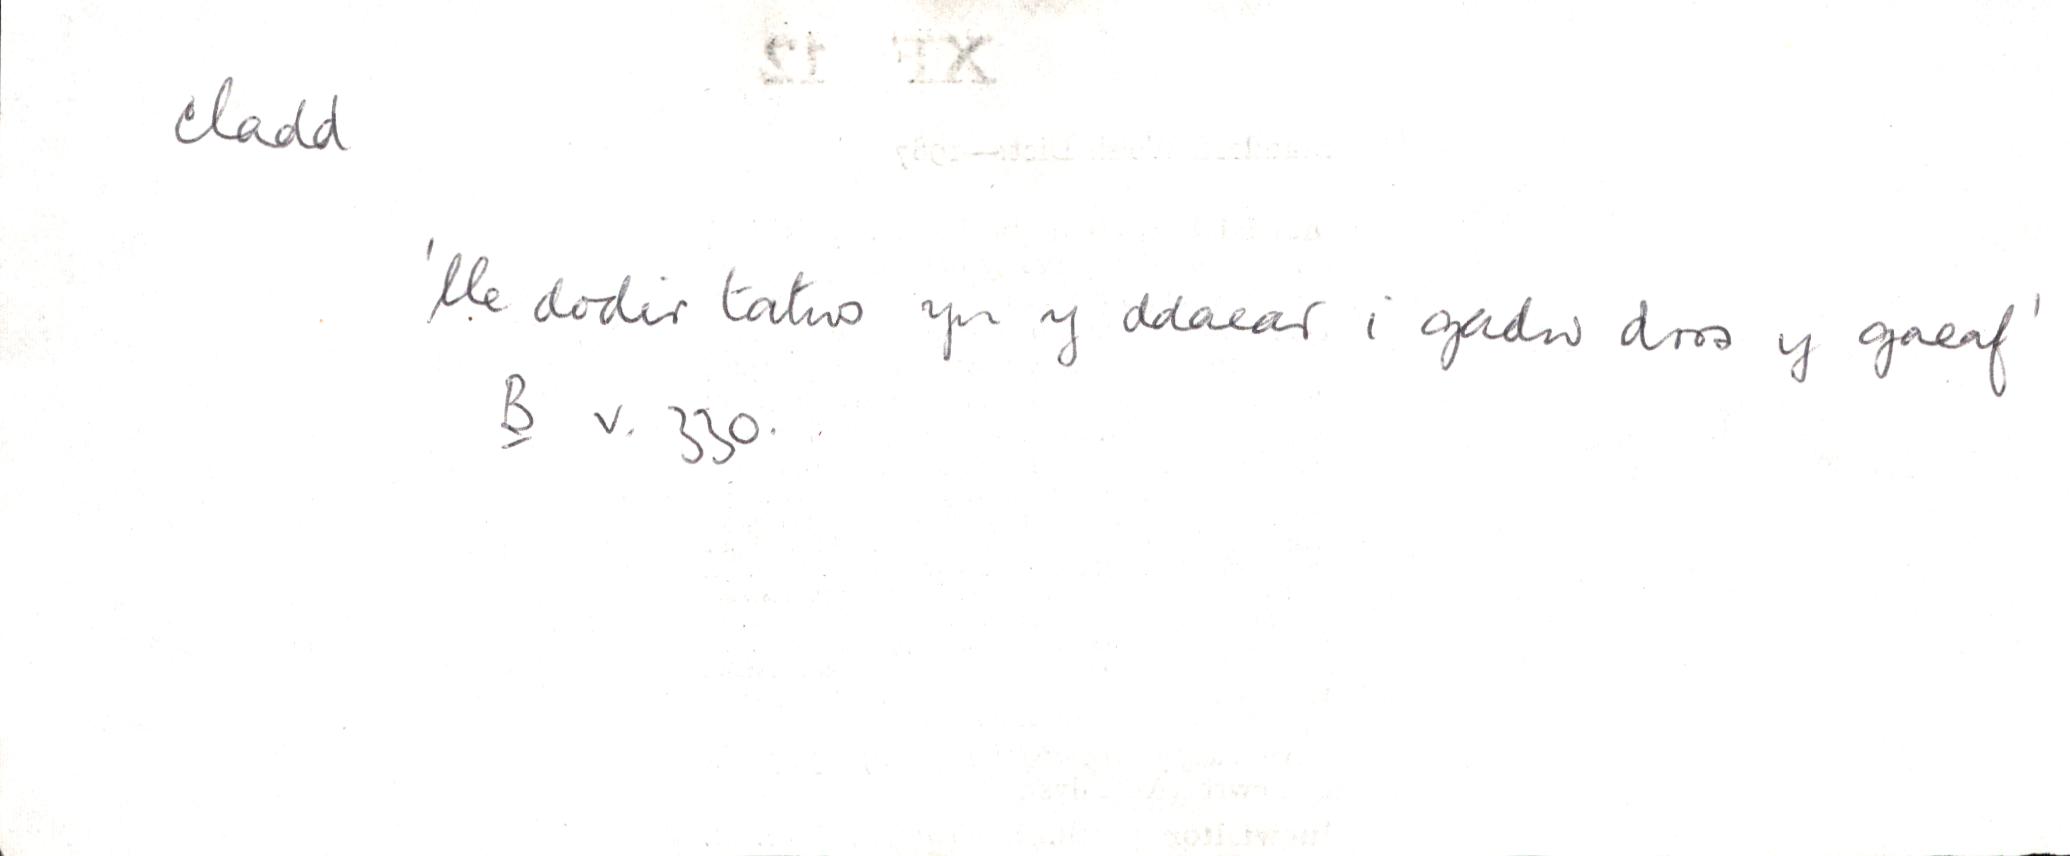 cladd
'lle dodir tatws yn y ddaear i gadw dros y gaeaf'
B v. 330.